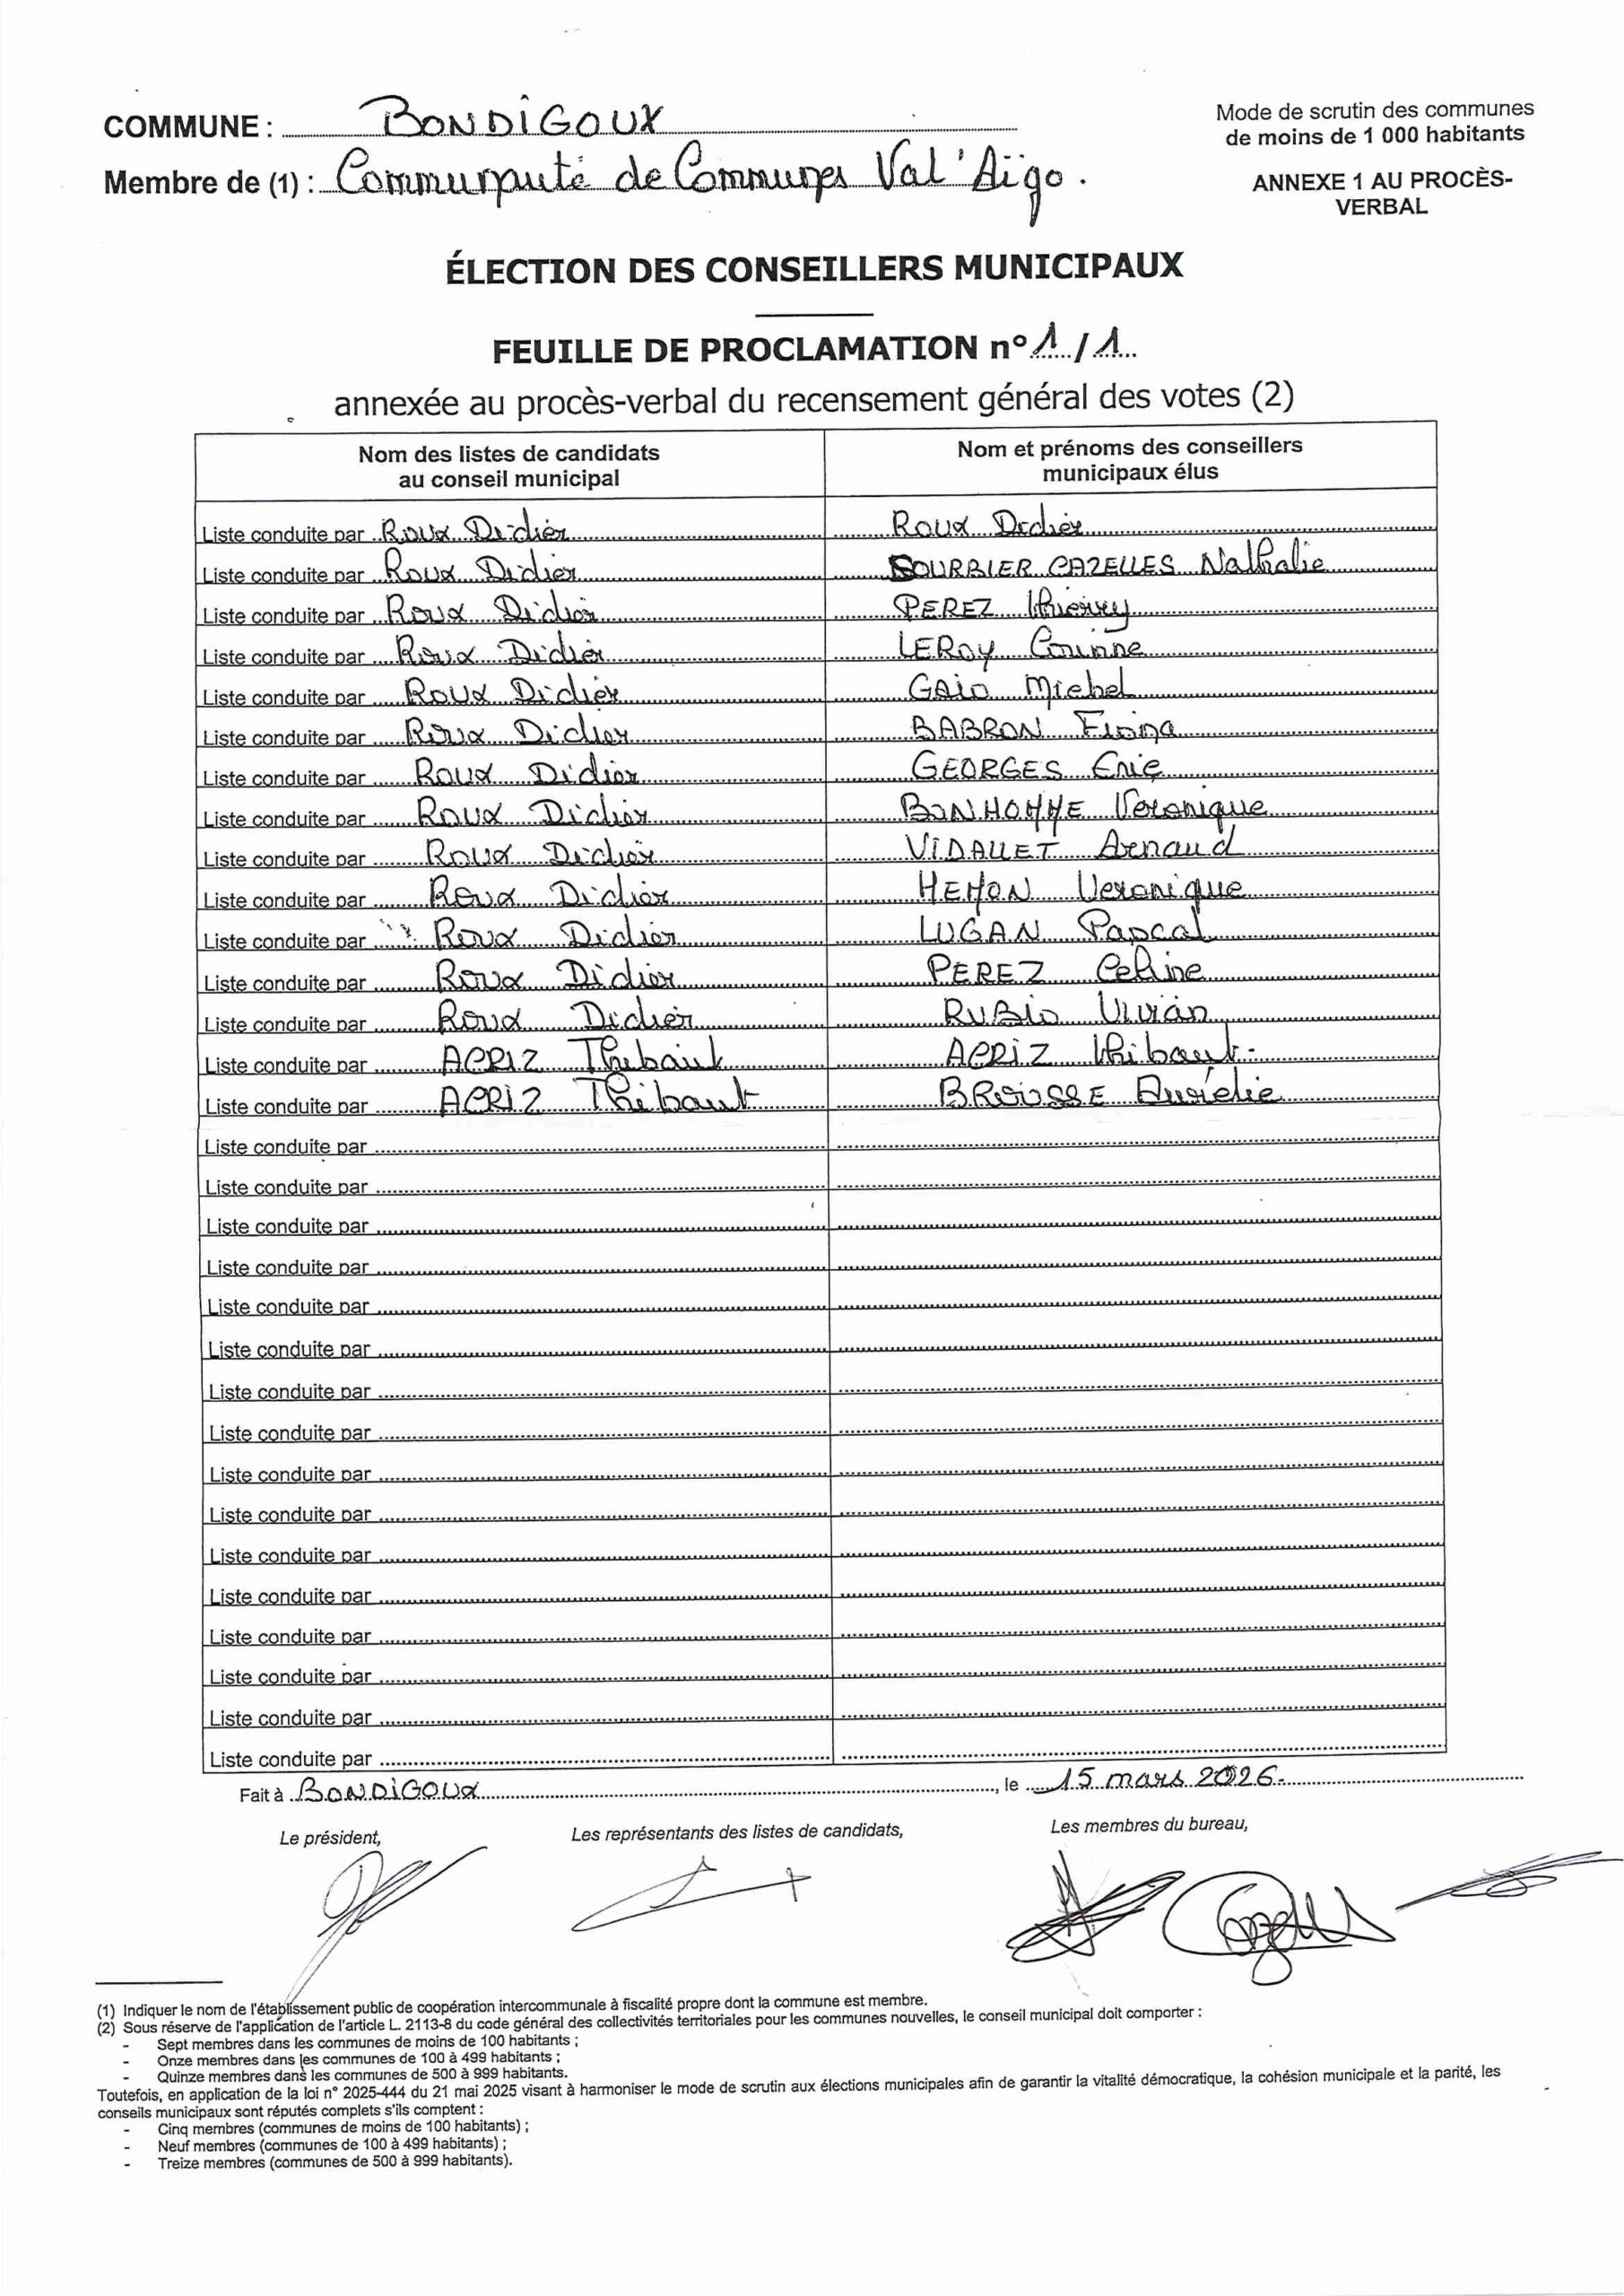 COMMUNE : BONDIGOUX
Mode de scrutin des communes
de moins de 1 000 habitants
Membre de (1) : Communauté de Communes Val'Aïgo.
ANNEXE 1 AU PROCÈS-
VERBAL
ÉLECTION DES CONSEILLERS MUNICIPAUX
FEUILLE DE PROCLAMATION n° 1 / 1
annexée au procès-verbal du recensement général des votes (2)
Nom des listes de candidats
au conseil municipal
Nom et prénoms des conseillers
municipaux élus
Liste conduite par Roux Didier Roux Didier
Liste conduite par Roux Didier SOURBIER CAZELLES Nathalie
Liste conduite par Roux Didier PEREZ Thierry
Liste conduite par Roux Didier LEROY Corinne
Liste conduite par Roux Didier GAIO Michel
Liste conduite par Roux Didier BABRON Fiona
Liste conduite par Roux Didier GEORGES Eric
Liste conduite par Roux Didier BONHOMME Veronique
Liste conduite par Roux Didier VIDALLET Arnaud
Liste conduite par Roux Didier HEMON Veronique
Liste conduite par Roux Didier LUGAN Pascal
Liste conduite par Roux Didier PEREZ Celine
Liste conduite par Roux Didier RUBIO Vivian
Liste conduite par ACRIZ Thibaut ACRIZ Thibaut
Liste conduite par ACRIZ Thibaut BROUSSE Aurélie
Liste conduite par
Liste conduite par
Liste conduite par
Liste conduite par
Liste conduite par
Liste conduite par
Liste conduite par
Liste conduite par
Liste conduite par
Liste conduite par
Liste conduite par
Liste conduite par
Liste conduite par
Liste conduite par
Liste conduite par
Liste conduite par
Fait à BONDIGOUX, le 15 mars 2026.
Le président,
Les représentants des listes de candidats,
Les membres du bureau,
(1) Indiquer le nom de l'établissement public de coopération intercommunale à fiscalité propre dont la commune est membre.
(2) Sous réserve de l'application de l'article L. 2113-8 du code général des collectivités territoriales pour les communes nouvelles, le conseil municipal doit comporter :
- Sept membres dans les communes de moins de 100 habitants ;
- Onze membres dans les communes de 100 à 499 habitants ;
- Quinze membres dans les communes de 500 à 999 habitants.
Toutefois, en application de la loi n° 2025-444 du 21 mai 2025 visant à harmoniser le mode de scrutin aux élections municipales afin de garantir la vitalité démocratique, la cohésion municipale et la parité, les
conseils municipaux sont réputés complets s'ils comptent :
- Cinq membres (communes de moins de 100 habitants) ;
- Neuf membres (communes de 100 à 499 habitants) ;
- Treize membres (communes de 500 à 999 habitants).